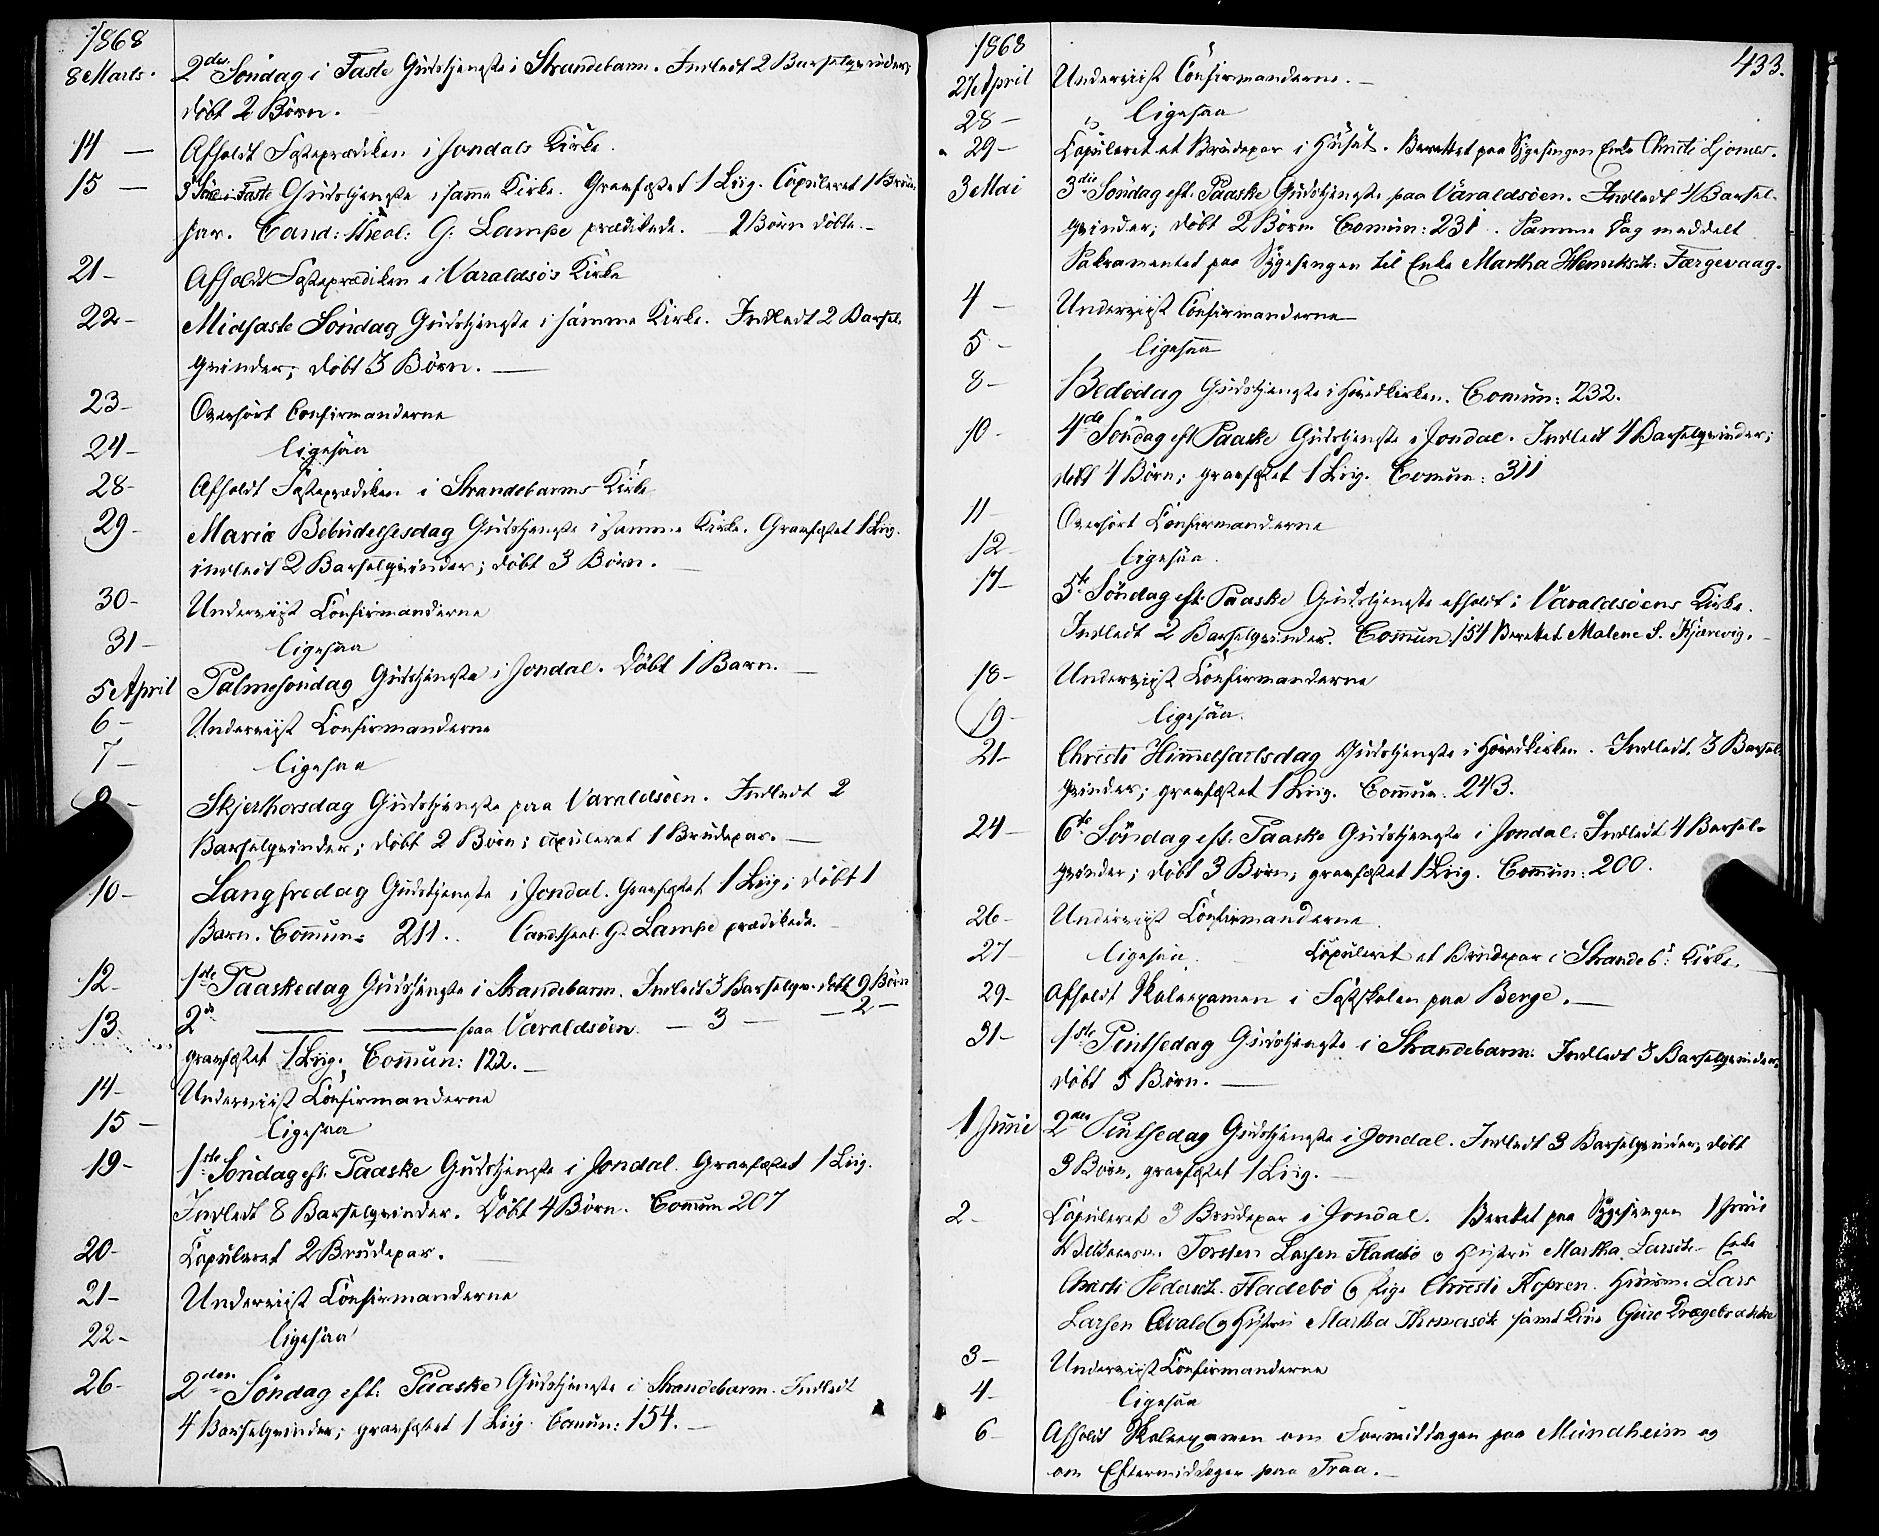 1868
8 Marts. 2den Søndag i Faste Gudstjeneste i Strandebarm. Indledt 2 Barselqvinder,
døbt 2 Børn.
14 — Afholdt Fasteprædiken i Jondals Kirke.
15 — 3 Sønd. i Faste Gudstjeneste i samme Kirke. Gravfæstet 1 Liig. Copuleret 1 Brude-
par. Cand: theol: G. Lampe prædikede. — 2 Børn døbte. —
21 — Afholdt Fasteprædiken i Varaldsøs Kirke
22 — Midfaste Søndag Gudstjeneste i samme Kirke. Indledt 2 Barsel-
qvinder; døbt 3 Børn. —
23 — Overhørt Confirmanderne
24 — ligesaa
28 — Afholdt Fasteprædiken i Strandebarms Kirke
29 — Mariæ Bebudelsesdag Gudstjeneste i samme Kirke. Gravfæstet 1 Liig.
indledt 2 Barselqvinder; døbt 3 Børn. —
30 — Underviist Confirmanderne
31 — ligesaa
5 April Palmesøndag Gudstjeneste i Jondal. Døbt 1 Barn. —
6 — Underviist Confirmanderne
7 — ligesaa
9 — Skjerthorsdag Gudstjeneste paa Varaldsøen. Indledt 2
Barselqvinder; døbt 2 Børn; copuleret 1 Brudepar. —
10 — Langfredag Gudstjeneste i Jondal. Gravfæstet 1 Liig; døbt 1
Barn. Commun: 211. Cand. theol. G. Lampe prædikede.
12 — 1ste Paaskedag Gudstjeneste i Strandebarm. Indledt 3 Barselqv. døbt 9 Børn
13 2d — — paa Varaldsøen. — 3 — — 2 —
gravfæstet 1 Liig. Commun: 122. —
14 — Underviist Confirmanderne
15 — ligesaa
19 — 1ste Søndag eft. Paaske Gudstjeneste i Jondal. Gravfæstet 1 Liig.
Indledt 8 Barselqvinder. Døbt 4 Børn. Commun 207
20 — Copuleret 2 Brudepar.
21 — Underviist Confirmanderne
22 — ligesaa
26 — 2den Søndag eft. Paaske Gudstjeneste i Strandebarm. Indledt
4 Barselqvinder; gravfæstet 1 Liig. Comun: 154. —
1868 433.
27 April Underviist Confirmanderne. —
28 — ligesaa
29 — Copuleret et Brudepar i Huset. Berettet paa Sygesengen Enke Christi Ljones.
3 Mai 3die Søndag eft. Paaske Gudstjeneste paa Varaldsøen. Indledt 4 Barsel-
qvinder; døbt 2 Børn Comun: 231. Samme Dag meddelt
Sakramentet paa Sygesengen til Enke Martha Henriksdt: Færgevaag.
4 — Underviist Confirmanderne
5 — ligesaa
8 — Bededag Gudstjeneste i Hovedkirken. Comun: 232.
10 — 4de Søndag eft Paaske Gudstjeneste i Jondal. Indledt 4 Barselqvinder;
døbt 4 Børn; gravfæstet 1 Liig. Comun: 311
11 — Overhørt Confirmanderne
12 — ligesaa.
17 — 5te Søndag eft. Paaske Gudstjeneste afholdt i Varaldsøens Kirke.
Indledt 2 Barselqvinder. Commun: 151 Berettet Malene S. Kjærevig. —
18 — Underviist Confirmanderne
19 — ligesaa.
21 — Christi Himmelfartsdag Gudstjeneste i Hovedkirken. Indledt 3 Barsel-
qvinder; gravfæstet 1 Liig. Commun. 243.
24 — 6te Søndag eft. Paaske Gudstjeneste i Jondal. Indledt 4 Barsel-
qvinder; døbt 3 Børn; gravfæstet 1 Liig. Commun: 200.
26 — Underviist Confirmanderne.
27 — ligesaa. Copuleret et Brudepar i Strandeb: Kirke. —
29 — Afholdt Skoleexamen i Fastskolen paa Berge. —
31 — 1ste Pintsedag Gudstjeneste i Strandebarm. Indledt 3 Barselqvinder
døbt 5 Børn. —
1 Juni 2den Pintsedag Gudstjeneste i Jondal. Indledt 3 Barselqvinder, døbt
3 Børn, gravfæstet 1 Liig. —
2 — Copuleret 3 Brudepar i Jondal. Berettet paa Sygesengen 1 Juni
Torsten Larsen Fladebø og Hustru Martha Larsdt. — Enke
Christi Pedersdt. Fladebø og Pige Christi Kopren. Huusm. Lars
Larsen Qvale og Hustru Martha Thomasdt samt Guro Drægebrække
3 — Underviist Confirmanderne
4 — ligesaa
6 — Afholdt Skoleexamen om Formiddagen paa Mundheim og
om Eftermiddagen paa Traa. —